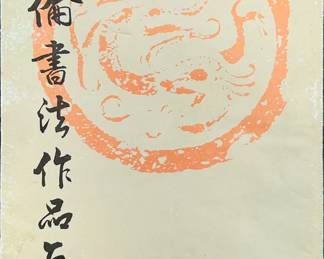 倫書法作品